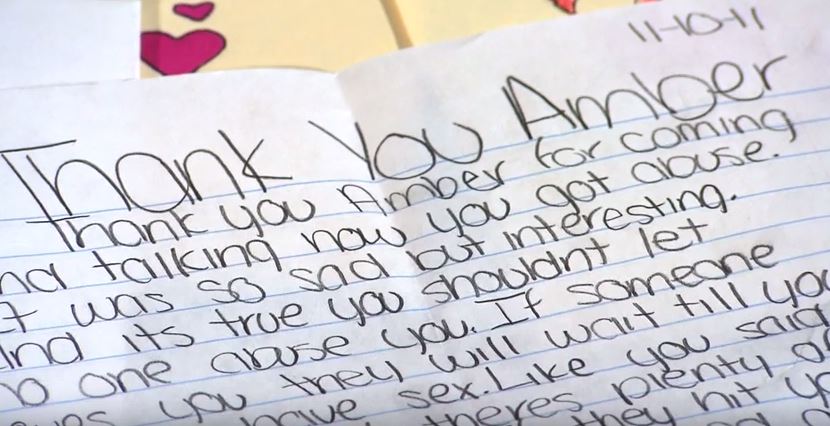 11-10-11
Thank You Amber
Thank you Amber for coming
nd talking how you got abuse.
t was so sad but interesting.
And its true you shouldnt let
o one abuse you. If someone
you they will wait till you
have sex. Like you said
theres plenty
they hit